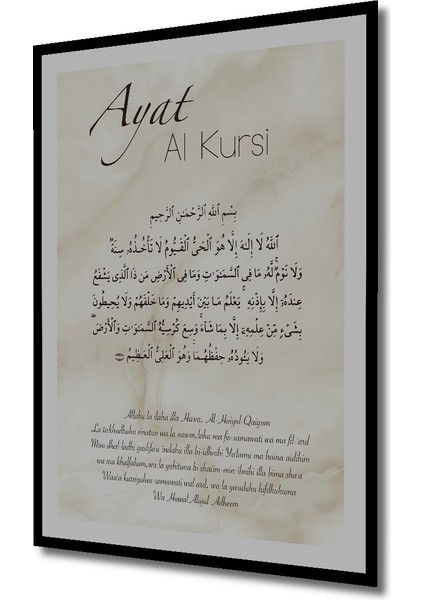 Ayat
Al Kursi
بِسْمِ ٱللَّهِ ٱلرَّحْمَٰنِ ٱلرَّحِيمِ
ٱللَّهُ لَا إِلَٰهَ إِلَّا هُوَ ٱلْحَىُّ ٱلْقَيُّومُ لَا تَأْخُذُهُۥ سِنَةٌ
وَلَا نَوْمٌ لَّهُۥ مَا فِى ٱلسَّمَٰوَٰتِ وَمَا فِى ٱلْأَرْضِ مَن ذَا ٱلَّذِى يَشْفَعُ
عِندَهُۥٓ إِلَّا بِإِذْنِهِۦ يَعْلَمُ مَا بَيْنَ أَيْدِيهِمْ وَمَا خَلْفَهُمْ وَلَا يُحِيطُونَ
بِشَىْءٍ مِّنْ عِلْمِهِۦٓ إِلَّا بِمَا شَآءَ وَسِعَ كُرْسِيُّهُ ٱلسَّمَٰوَٰتِ وَٱلْأَرْضَ
وَلَا يَـُٔودُهُۥ حِفْظُهُمَا وَهُوَ ٱلْعَلِىُّ ٱلْعَظِيمُ
Allahu la ilaha illa Huwa, Al Haiyul-Qaiyum
La ta'khudhuhu sinatun wa la nawm, lahu ma fis-samawati wa ma fil-ard
Man dhal-ladhi yashfa'u indahu illa bi-idhnihi Ya'lamu ma baina aidihim
wa ma khalfahum, wa la yuhituna bi shai'im-min ilmihi illa bima sha'a
Wasi'a kursiyuhus samawati wal ard, wa la ya'uduhu hifdhuhuma
Wa Huwal Aliyul Adheem